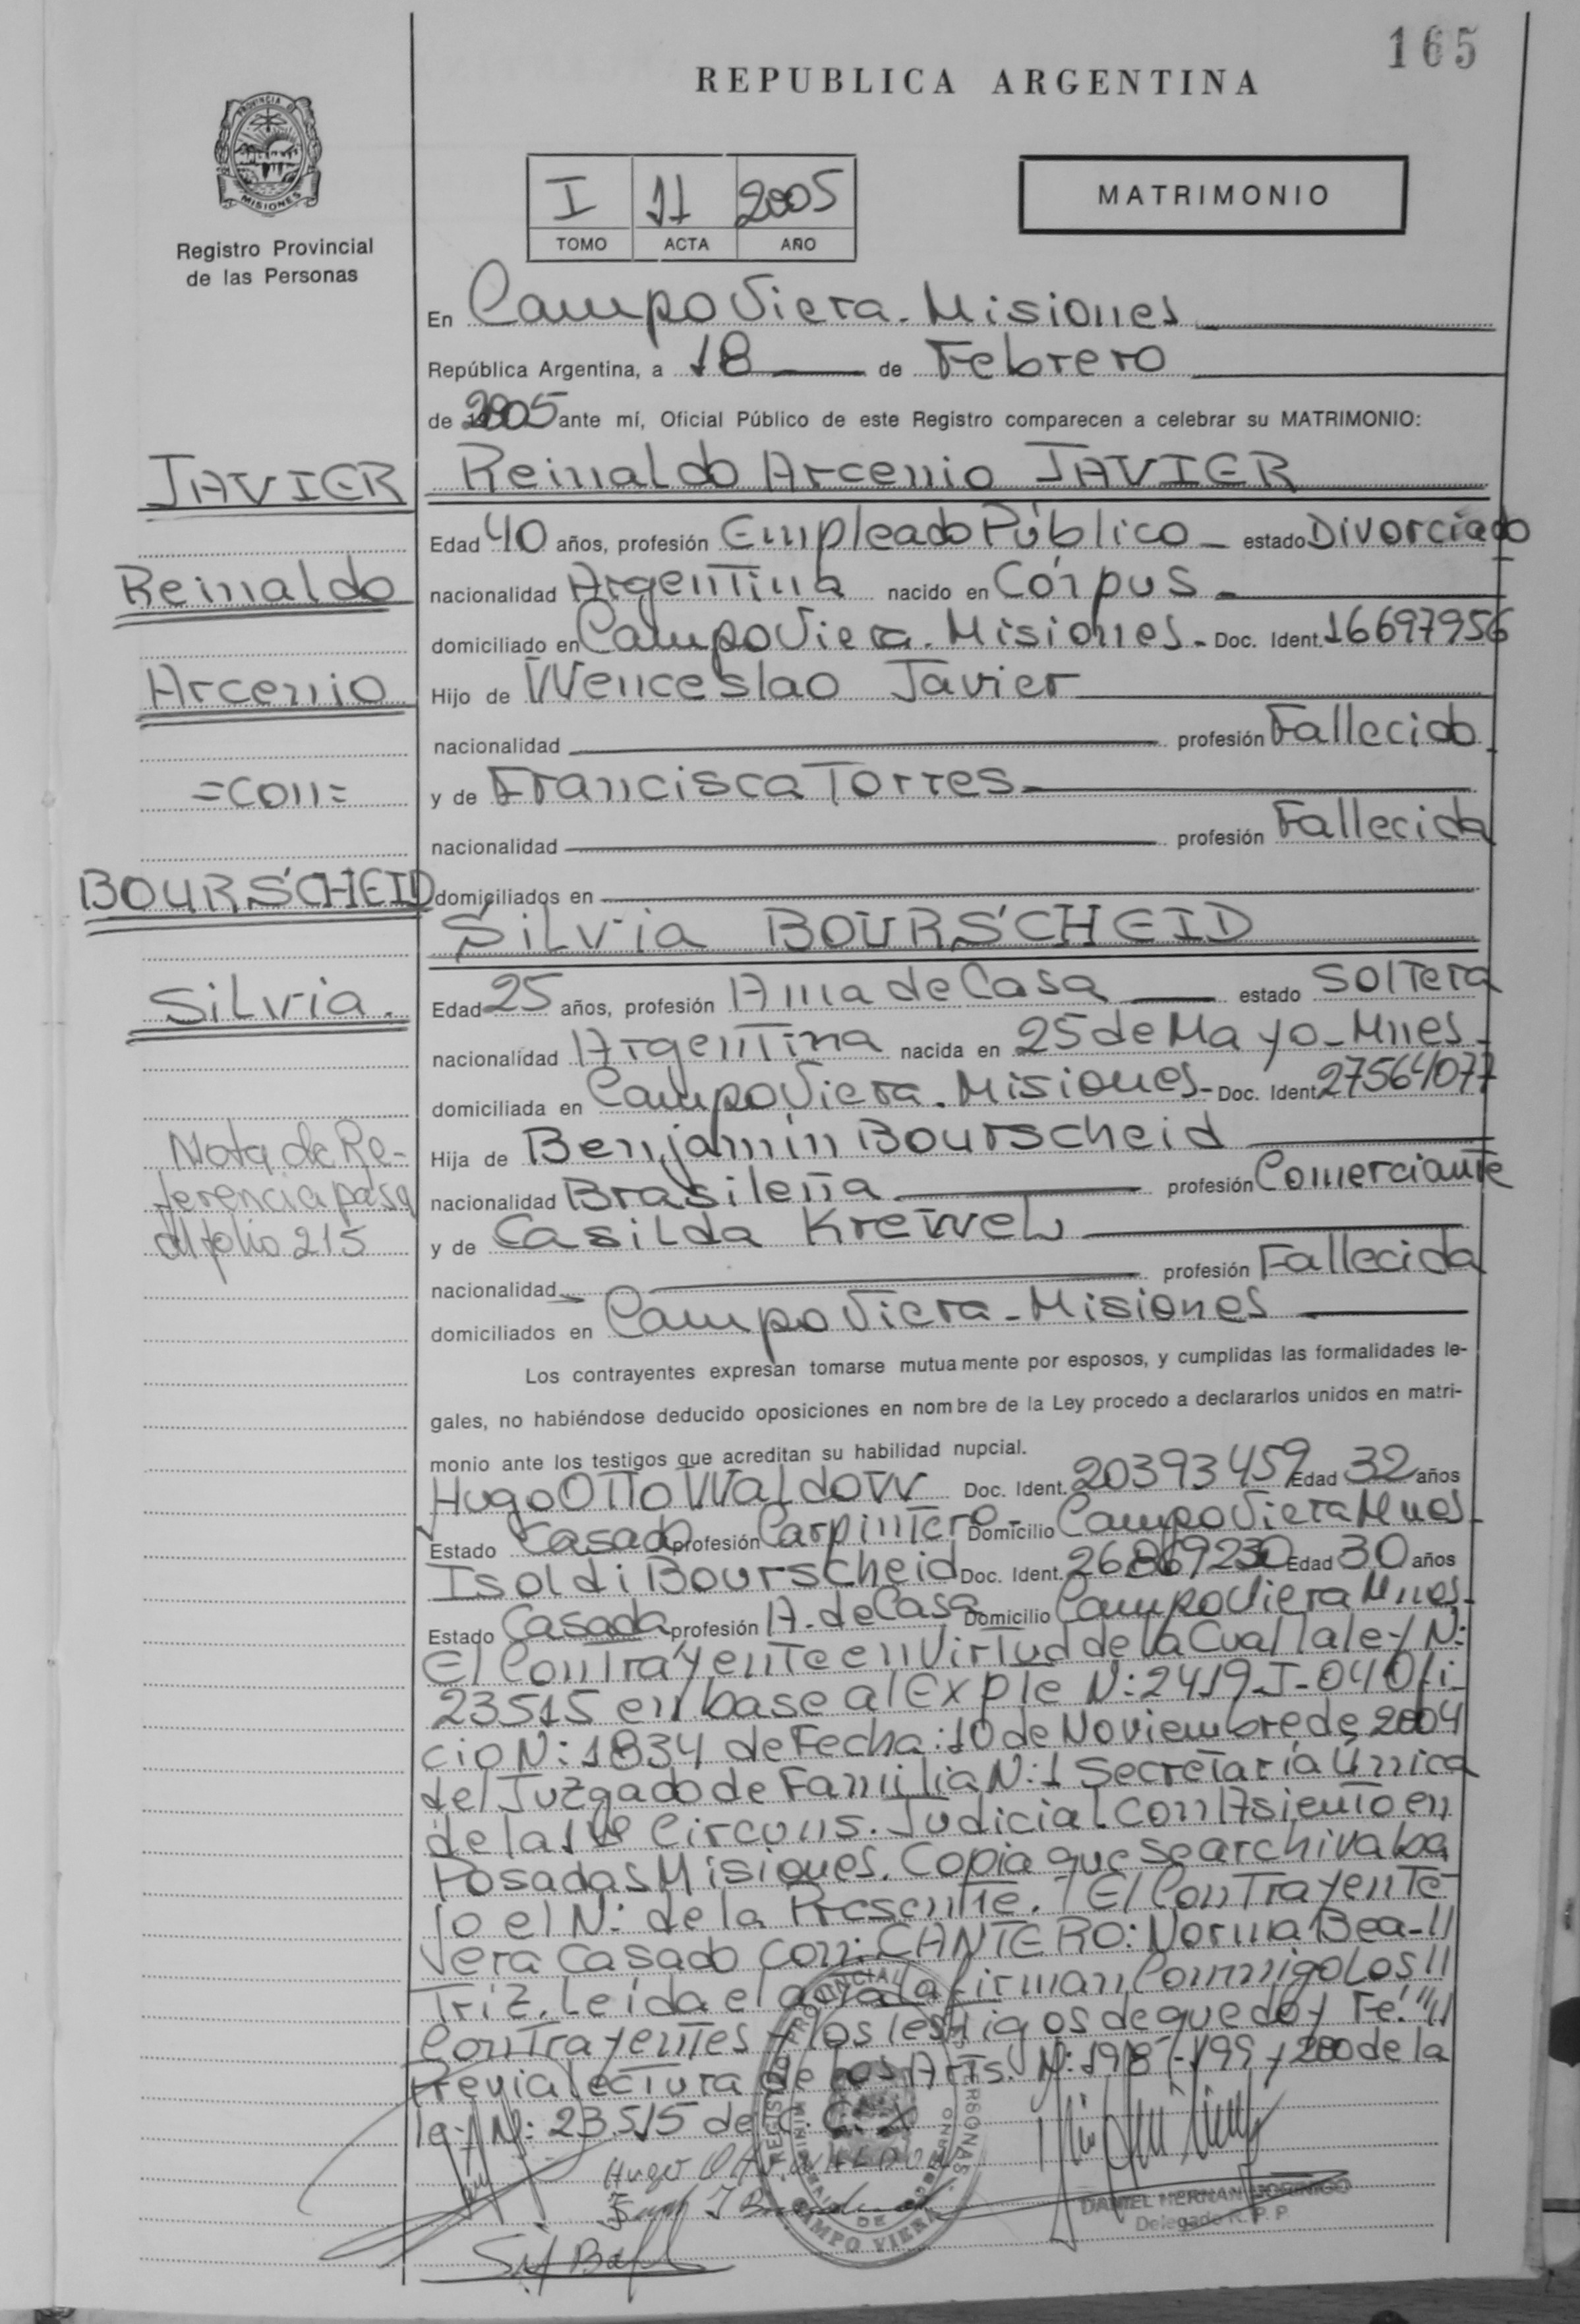 165
REPUBLICA ARGENTINA
PROVINCIA DE
MISIONES
Registro Provincial
de las Personas
I 11 2005
TOMO ACTA AÑO
MATRIMONIO
En Campo Viera - Misiones
República Argentina, a 18 de Febrero
de 2005 ante mí, Oficial Público de este Registro comparecen a celebrar su MATRIMONIO:
JAVIER
Reinaldo
Arcenio
=con=
BOURSCHEID
Silvia.
Nota de Re-
ferencia pasa
al folio 215
Reinaldo Arcenio JAVIER
Edad 40 años, profesión Empleado Público - estado Divorciado
nacionalidad Argentina nacido en Córpus -
domiciliado en Campo Viera. Misiones - Doc. Ident. 16697956
Hijo de Wenceslao Javier
nacionalidad profesión Fallecido
y de Francisca Torres
nacionalidad profesión Fallecida
domiciliados en
Silvia BOURSCHEID
Edad 25 años, profesión Ama de Casa estado Soltera
nacionalidad Argentina nacida en 25 de Mayo - Mnes -
domiciliada en Campo Viera. Misiones - Doc. Ident. 27564077
Hija de Benjamín Bourscheid
nacionalidad Brasileña profesión Comerciante
y de Casilda Krewel
nacionalidad profesión Fallecida
domiciliados en Campo Viera - Misiones
Los contrayentes expresan tomarse mutuamente por esposos, y cumplidas las formalidades le-
gales, no habiéndose deducido oposiciones en nombre de la Ley procedo a declararlos unidos en matri-
monio ante los testigos que acreditan su habilidad nupcial.
Hugo Otto Waldow Doc. Ident. 20393459 Edad 32 años
Estado Casado profesión Carpintero - Domicilio Campo Viera Mnes -
Isoldi Bourscheid Doc. Ident. 26869230 Edad 30 años
Estado Casada profesión A. de Casa Domicilio Campo Viera Mnes -
El Contrayente en Virtud de la Cual la ley N:
23515 en base al Expte N: 2419-J-04 Ofi-
cio N: 1834 de Fecha: 10 de Noviembre de 2004
del Juzgado de Familia N: 1 Secretaría Única
de la 1ra Circuns. Judicial Con Asiento en
Posadas Misiones. Copia que se archiva ba
jo el N: de la Presente. El Contrayente
era casado con: CANTERO: Norma Bea-//
Triz. Leída el acta la firman Conmigo Los //
Contrayentes y los Testigos de que doy Fe. "//
Previa lectura de los Arts. N: 198 - 199 y 200 de la
ley N: 23.515 de C. C.
Hugo O
REGISTRO PROVINCIAL DE LAS PERSONAS
CAMPO VIERA
DANIEL HERNAN DORNIGO
Delegado R. P. P.